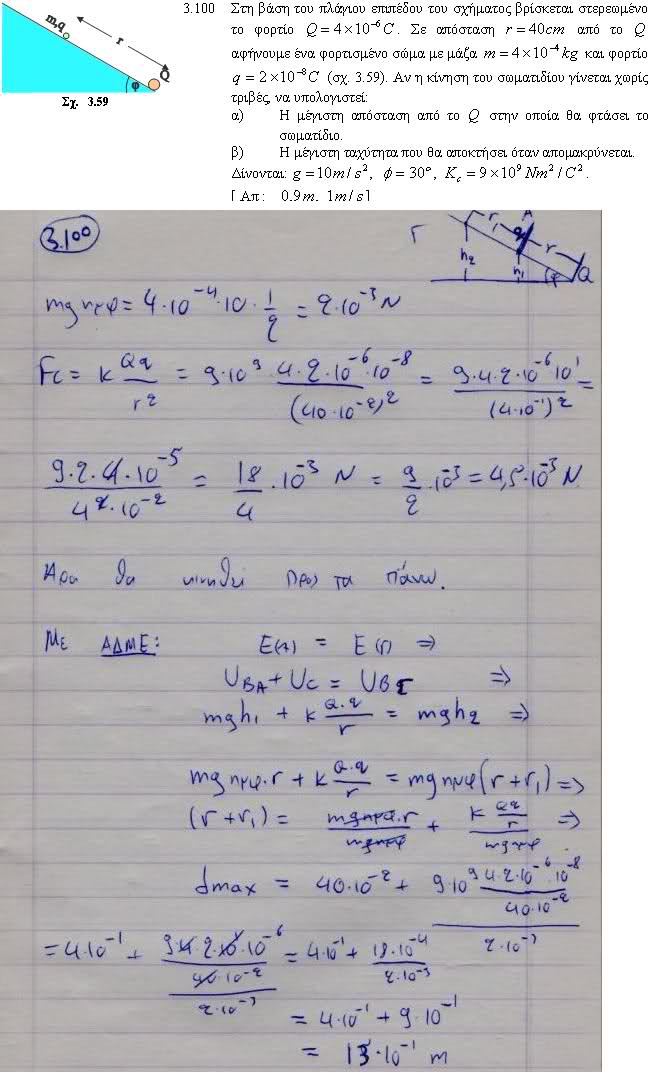 m,q
r
Q
φ
Σχ. 3.59
3.100 Στη βάση του πλάγιου επιπέδου του σχήματος βρίσκεται στερεωμένο
το φορτίο Q = 4×10⁻⁶ C. Σε απόσταση r = 40cm από το Q
αφήνουμε ένα φορτισμένο σώμα με μάζα m = 4×10⁻⁴ kg και φορτίο
q = 2×10⁻⁸ C (σχ. 3.59). Αν η κίνηση του σωματιδίου γίνεται χωρίς
τριβές, να υπολογιστεί:
α) Η μέγιστη απόσταση από το Q στην οποία θα φτάσει το
σωματίδιο.
β) Η μέγιστη ταχύτητα που θα αποκτήσει όταν απομακρύνεται.
Δίνονται: g = 10m/s², φ = 30°, K_c = 9×10⁹ Nm²/C².
[ Απ: 0.9m. 1m/s]
3.100
Γ r₁ A q r h₂ h₁ φ Q
mgημφ = 4·10⁻⁴·10·1/2 = 2·10⁻³ N
Fc = k Qq/r² = 9·10⁹·4·2·10⁻⁶·10⁻⁸/(40·10⁻²)² = 9·4·2·10⁻⁶·10¹/(4·10⁻¹)² =
9·2·4·10⁻⁵/4²·10⁻² = 18/4·10⁻³ N = 9/2·10⁻³ = 4,5·10⁻³ N
Άρα θα κινηθεί προς τα πάνω.
Με ΑΔΜΕ: E(A) = E(Γ) ⇒
U_BA + U_C = U_BΓ ⇒
mgh₁ + k Q·q/r = mgh₂ ⇒
mgημφ·r + k Q·q/r = mgημφ(r+r₁) ⇒
(r+r₁) = mgημφ·r/mgημφ + k Qq/r/mgημφ ⇒
dmax = 40·10⁻² + 9·10⁹ 4·2·10⁻⁶·10⁻⁸/40·10⁻²/2·10⁻³
= 4·10⁻¹ + 9·4·2·10¹·10⁻⁶/40·10⁻²/2·10⁻³ = 4·10⁻¹ + 18·10⁻⁴/2·10⁻³
= 4·10⁻¹ + 9·10⁻¹
= 13·10⁻¹ m